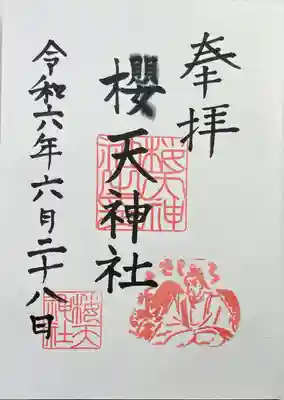 奉拝
櫻天神社
令和六年六月二十八日
櫻天神
櫻天
神社